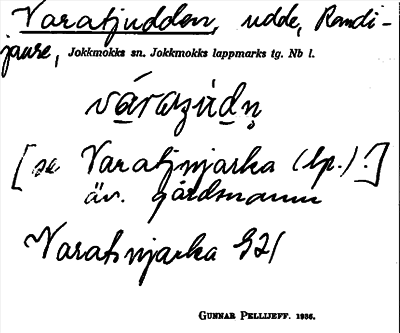 Varatjudden, udde, Randi-
jaure, Jokkmokks sn. Jokkmokks lappmarks tg. Nb l.
várazùdn̥
[se Varatjnjarka (lp.).]
äv. gårdsnamn
Varatsnjarka G21
GUNNAR PELLIJEFF. 1936.